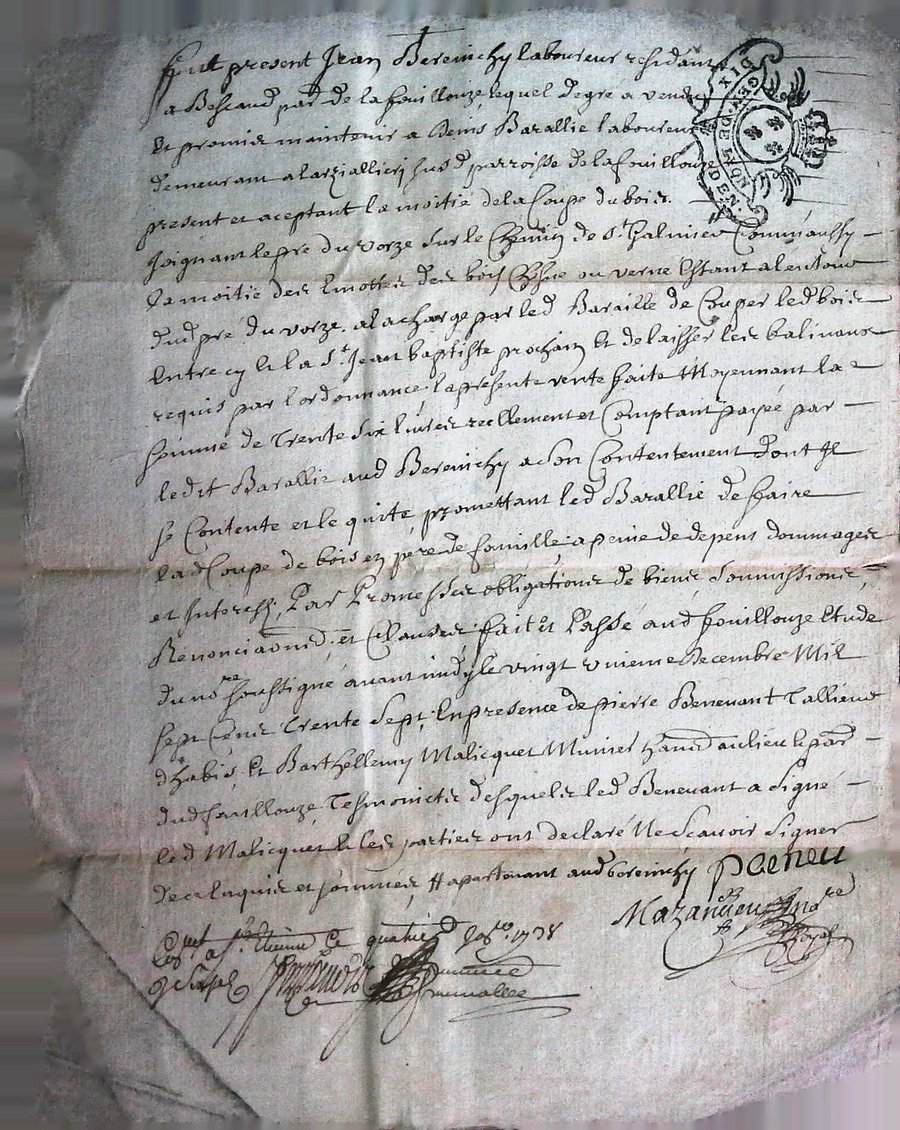 Fut present Jean Bereinchy laboureur residant
a Boscaud par de lafouillouze lequel degre a vendu
Et promis maintenir a Denis Barallie laboureur
demeurant a sud parroisse de lafouillouze
present et aceptant la moitie dela Coupe du bois #
Joignant le pré du vorze sur le Chemin de St Galmier Comm'aussy
la moitie des des bois Chesne ou verne Estant alentour
dud pré du vorze. a la charge par led Baraille de Couper led bois
Entre cy et la St Jean baptiste prochain et de laisser les balivaux
requis par l'ordonnance, la présente vente faite Moyennant la
somme de Trente six livres reellement et Comptant payée par
ledit Barallie aud Bereinchy a son Contentement dont Il
se Contente et le quite, promettant led Barallie de faire
lad Coupe de bois en pere de famille, a peine de depens dommages
et Interests, Par Promesses obligations de biens, soumissions,
Renonciaons et Clauses, fait et Passé aud fouillouze Etude
du nore soussigné avant midy le vingt unieme Decembre Mil
sept Cens Trente sept, En presence de pierre Benevant Tallieur
d'habis, Et Barthellemy Malicquet Munier hand au lieu et par
dud fouillouze, Tesmoins desquels led Benevant a signé
led Malicquet et les parties ont declaré ne scavoir signer
de ce Enquis et sommés, # apartenant aud bereinchy
Mazandieu nore Royal
a St Etienne Ce quatrie 1738